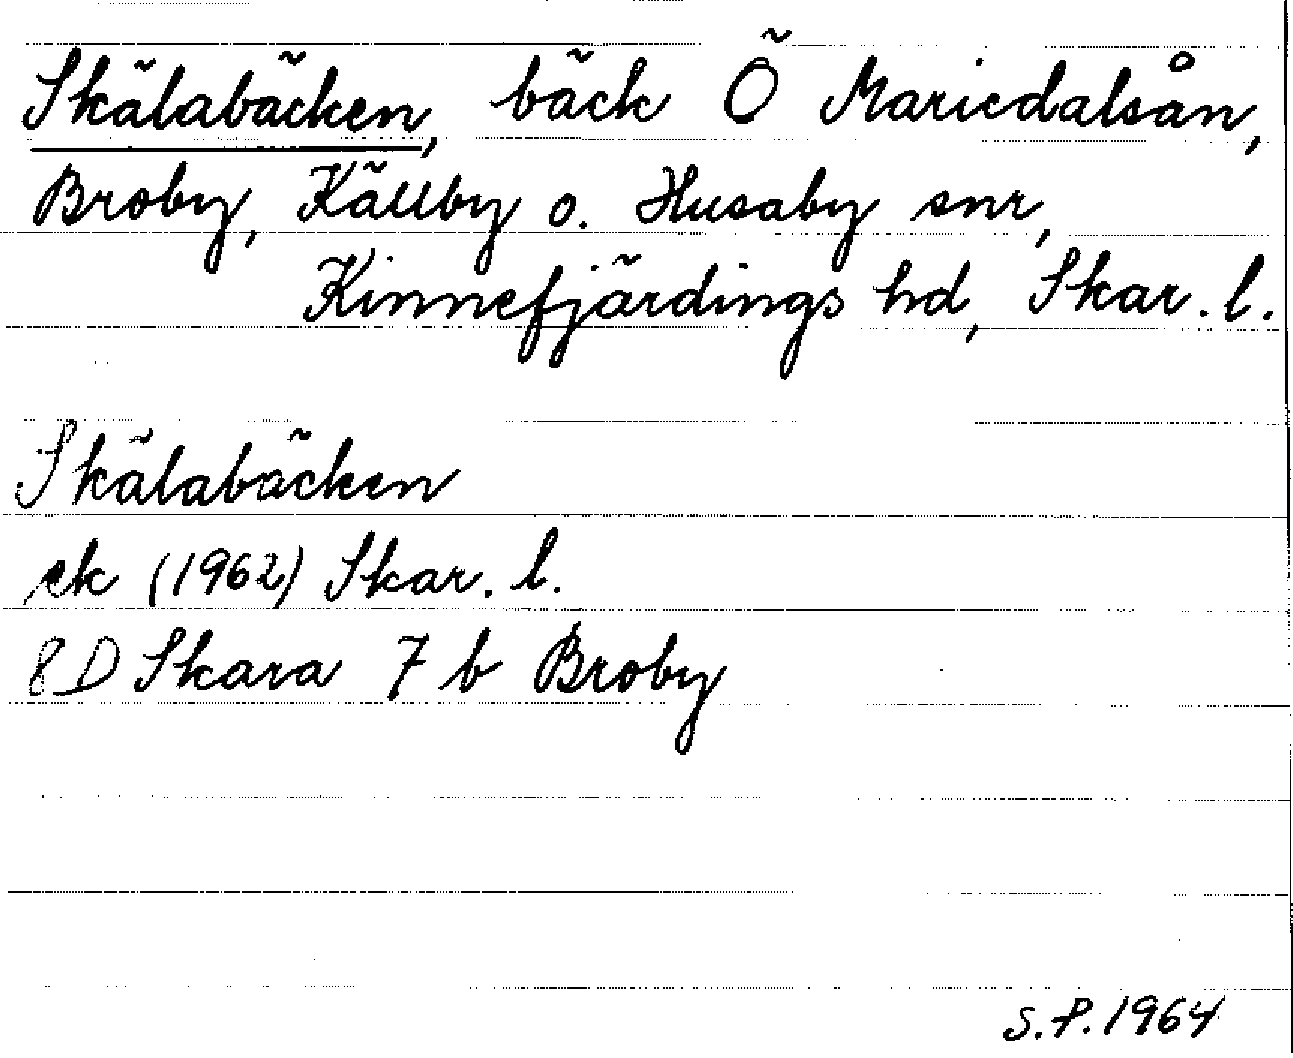 Skälabäcken, bäck Ö Mariedalsån,
Broby, Källby o. Husaby snr,
Kinnefjärdings hd, Skar. l.
Skälabäcken
ek (1962) Skar. l.
8D Skara 7 b Broby
S.P. 1964